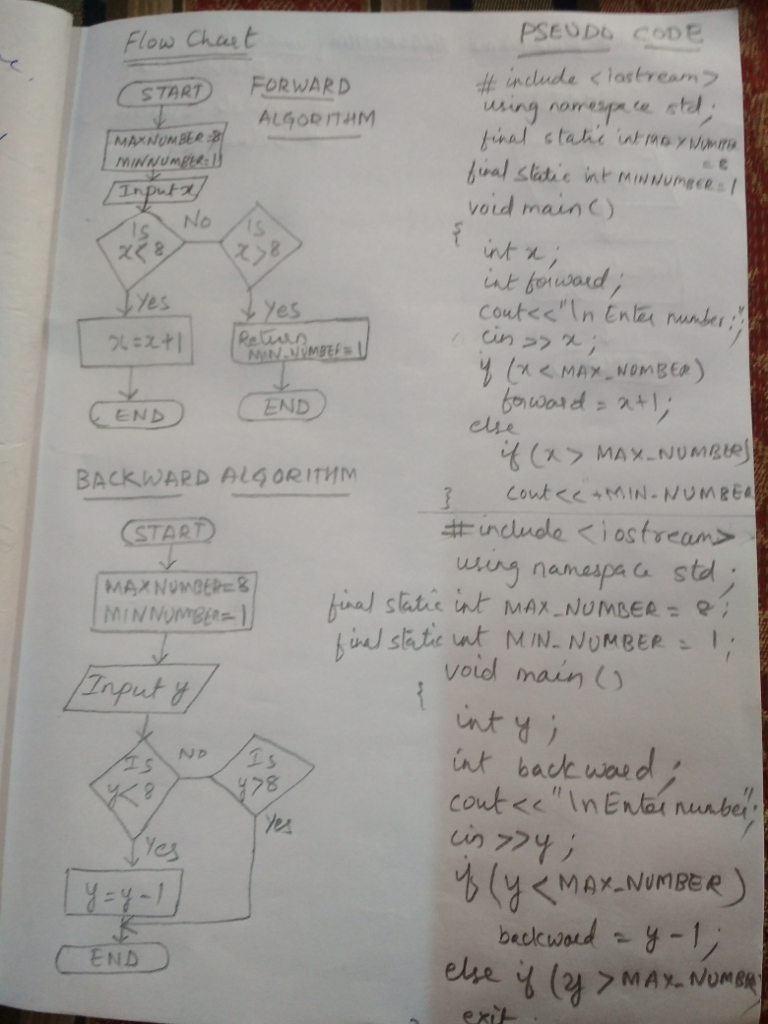 Flow Chart
FORWARD
ALGORITHM
START
MAXNUMBER=8
MINNUMBER=1
Input x
Is
x<8
NO
Is
x>8
Yes
Yes
x=x+1
Return
MIN_NUMBER=1
END
END
BACKWARD ALGORITHM
START
MAXNUMBER=8
MINNUMBER=1
Input y
Is
y<8
NO
Is
y>8
Yes
Yes
y=y-1
END
PSEUDO CODE
# include <iostream>
using namespace std;
final static int MAXNUMBER
= 8
final static int MINNUMBER=1
void main()
{
int x;
int forward;
cout<<"\n Enter number:";
cin >> x;
if (x < MAX_NUMBER)
forward = x+1;
else
if (x > MAX_NUMBER)
cout<< +MIN-NUMBER
}
#include <iostream>
using namespace std;
final static int MAX_NUMBER = 8;
final static int MIN_NUMBER = 1;
void main()
{
int y;
int backward;
cout<<"\n Enter number";
cin >>y;
if (y < MAX_NUMBER)
backward = y-1;
else if (y > MAX_NUMBER
exit